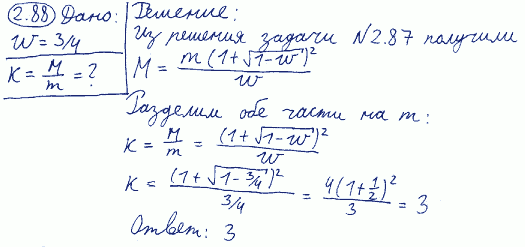 2.88 Дано:
W = 3/4
K = M/m = ?
Решение:
Из решения задачи N2.87 получили
M = m(1+√(1-w))²/w
Разделим обе части на m:
K = M/m = (1+√(1-w))²/w
K = (1+√(1-3/4))²/(3/4) = 4(1+1/2)²/3 = 3
Ответ: 3